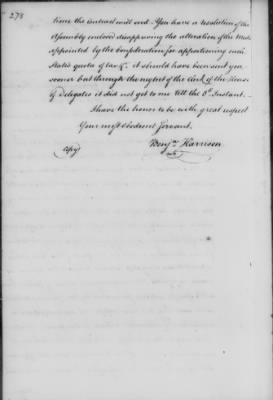 278
time the contract will end. You have a resolution of the
Assembly inclosed disapproving the alteration of the Mode
appointed by the Confederation for apportioning each
States quota of tax &c. it should have been sent you
sooner but through the neglect of the Clerk of the House
of Delegates it did not get to me till the 8th Instant. _
I have the honor to be with great respect
Your most obedient Servant.
Benja. Harrison
Copy